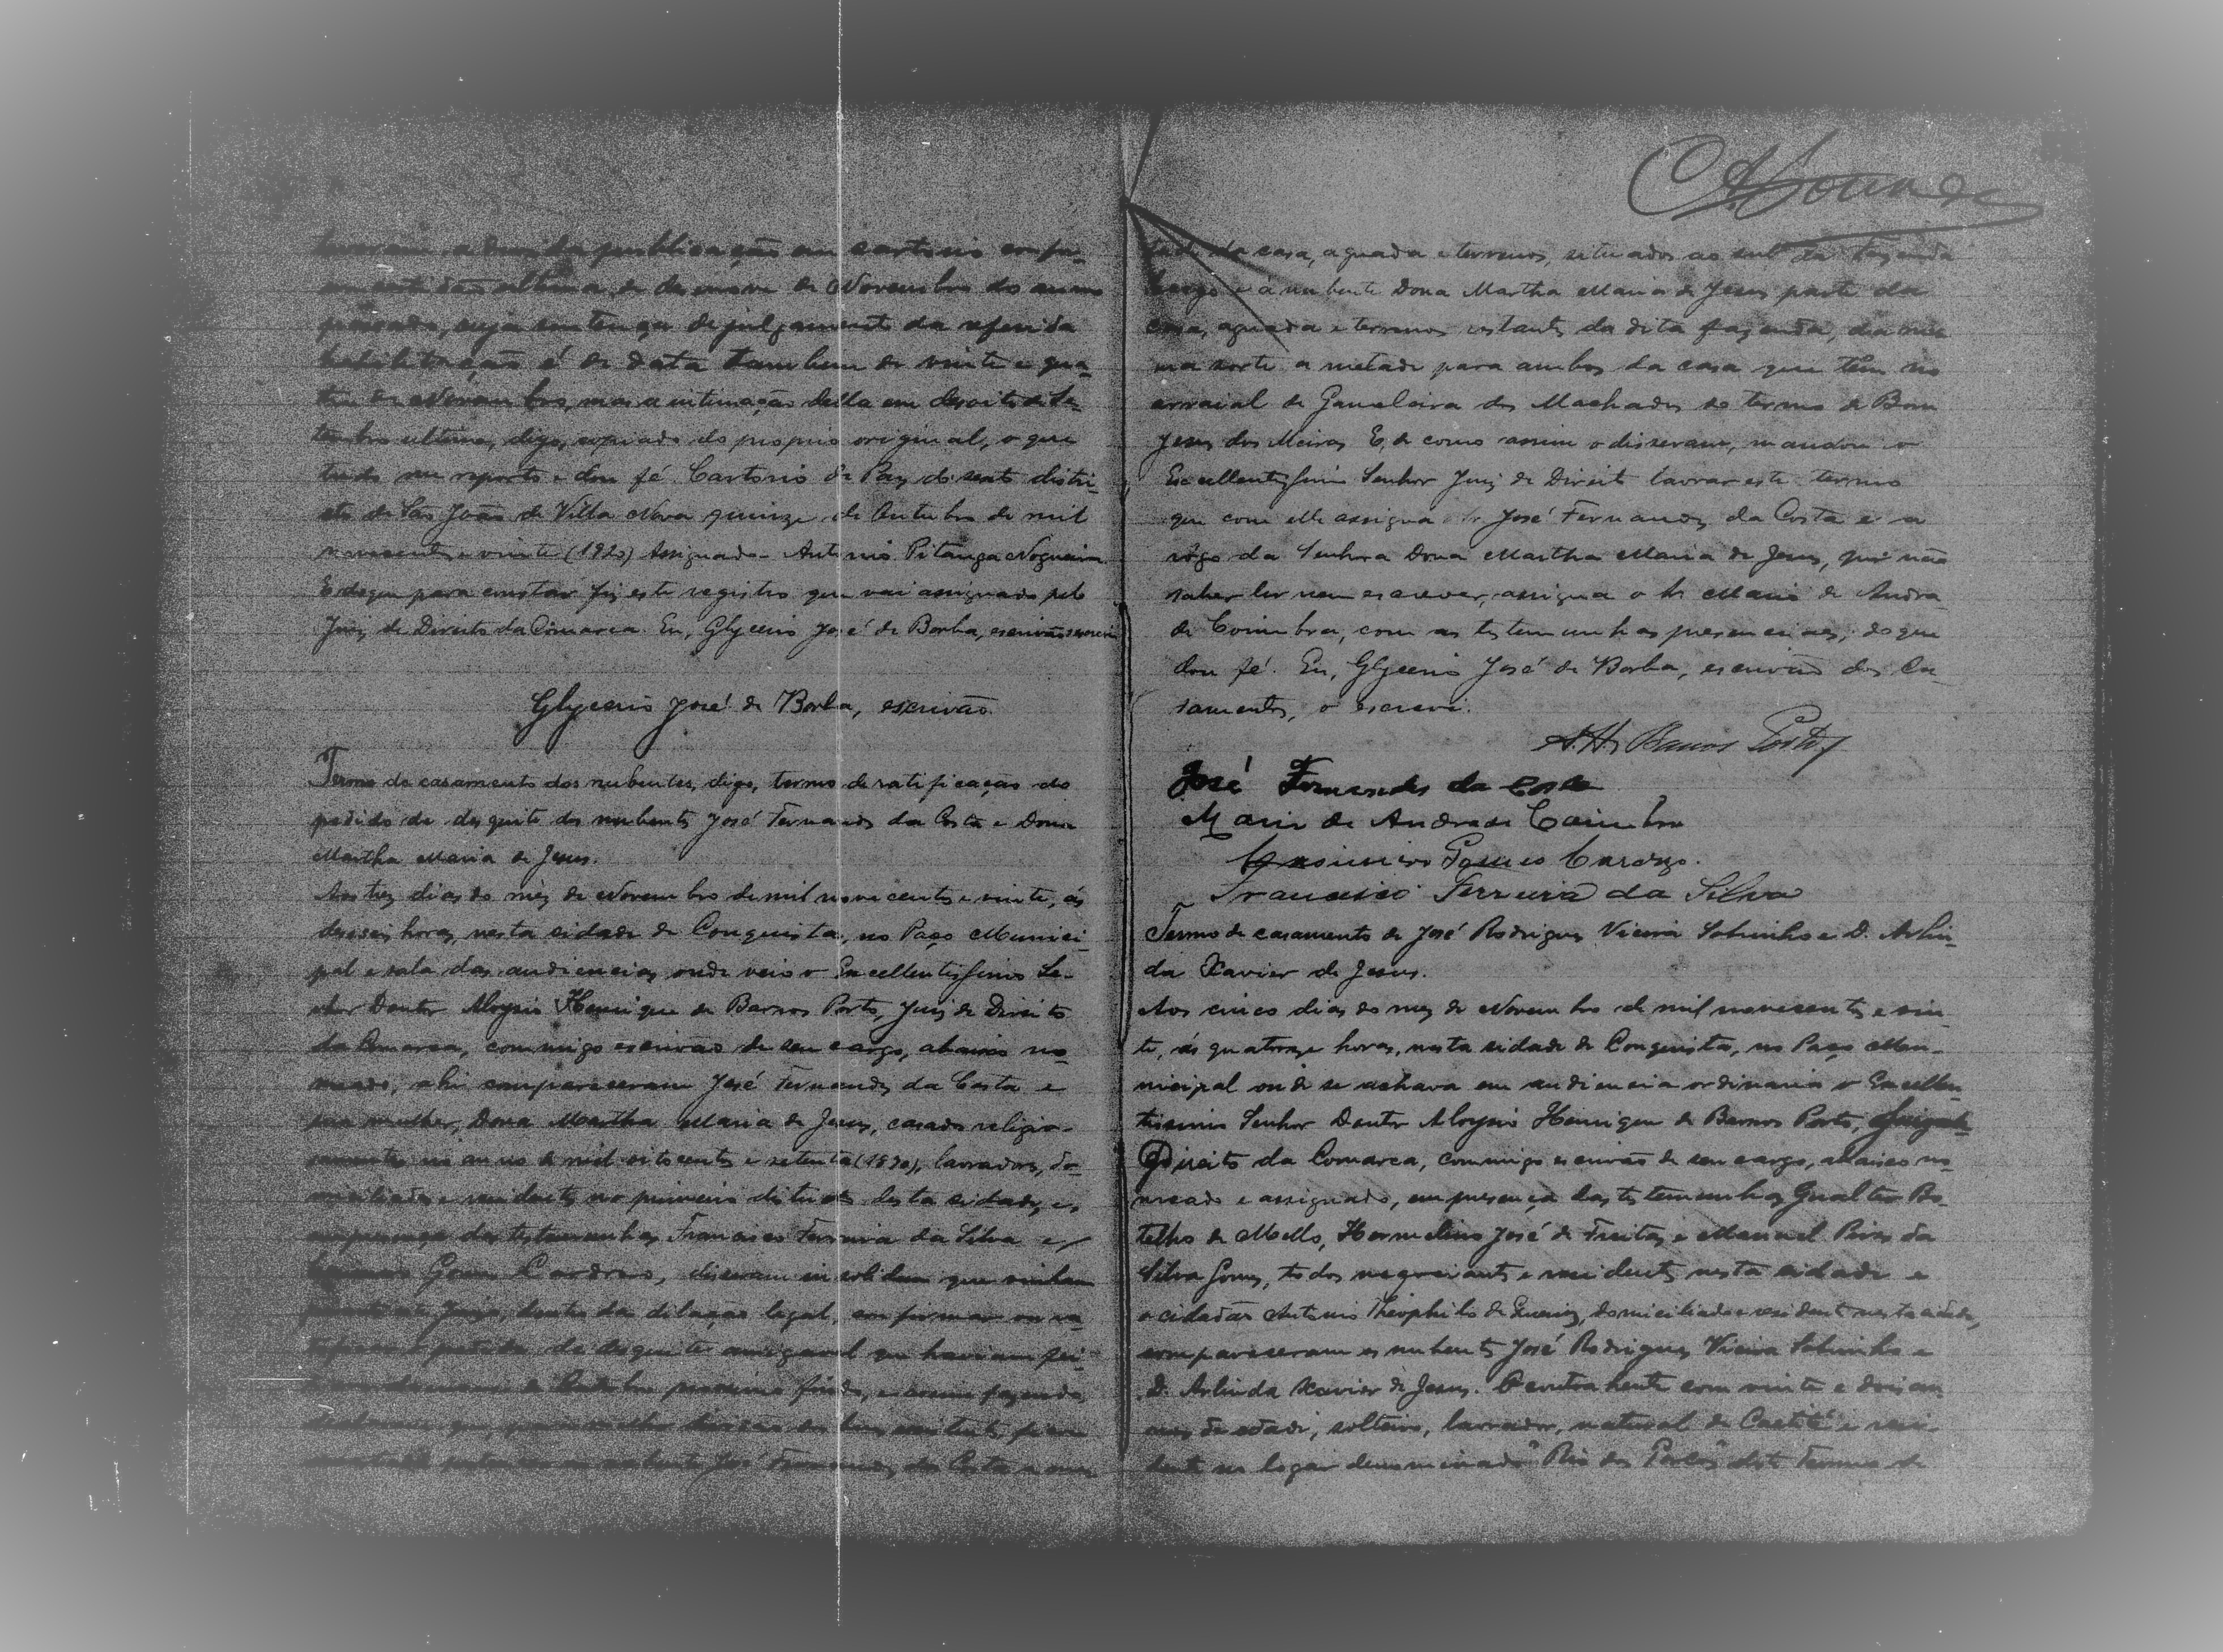 a devida publicação em cartorio
de Novembro do anno
passado, cuja sentença de julgamento da referida
habilitação é de data tambem de vinte e qua-
tro de Novembro, mas a intimação della em dezoito de Se-
tembro ultimo, digo, copiado do proprio original, o que
tudo me reporto e dou fé. Cartorio de Paz do sexto distri-
cto de São João de Villa Nova quinze de Outubro de mil
novecentos e vinte (1920) Assignado - Antonio Pitanga Nogueira
E do que para constar fiz este registro que vai assignado pelo
Juiz de Direito da Comarca. Eu, Glycerio José de Borba, escrivão escrevi
Glycerio José de Borba, escrivão
Termo de casamento dos nubentes, digo, termo de ratificação do
pedido de desquite dos nubentes José Fernandes da Costa e Dona
Martha Maria de Jesus.
Aos tres dias do mês de Novembro de mil nove centos e vinte, ás
deseseis horas, nesta cidade de Conquista, no Paço Munici-
pal e sala das audiencias onde veio o Excellentissimo Se-
nhor Doutor Aloysio Henrique de Barros Porto, Juiz de Direito
da Comarca, commigo escrivão de seu cargo, abaixo no-
meado, ahi compareceram José Fernandes da Costa e
sua mulher, Dona Martha Maria de Jesus, casados religio-
samente no anno de mil oitocentos e setenta (1870), lavradores, do-
miciliados e residentes no primeiro districto desta cidade, e,
em presença das testemunhas Francisco Ferreira da Silva e
Gomes Cardoso, disseram in solidum que vinham
Juizo, dentro da dilação legal, confirmar ou ra-
o pedido de desquite amigavel que haviam fei-
de Outubro proximo findo, e assim fazendo,
que, para
José Fernandes da Costa a me-
tade da casa, aguada e terrenos, situados ao sul da fazenda
e á nubente Dona Martha Maria de Jesus parte da
casa, aguada e terrenos restantes da dita fazenda, da mes-
ma sorte a metade para ambos da casa que têm no
arraial de Gameleira dos Machados do termo de Bom
Jesus dos Meiras. E, de como assim o disseram, mandou o
Excellentissimo Senhor Juiz de Direito lavrar este termo
que com elle assigna o Sr José Fernandes da Costa e a
rôgo da Senhora Dona Martha Maria de Jesus, por não
saber ler nem escrever, assigna o Sr Mario de Andra-
de Coimbra, com as testemunhas presenciaes; do que
dou fé. Eu, Glycerio José de Borba, escrivão dos Ca-
samentos, o escrevi.
A. H. Barros Porto
José Fernandes da Costa
Mario de Andrade Coimbra
Gomes Cardozo.
Francisco Ferreira da Silva
Termo de casamento de José Rodrigues Vieira Sobrinho e D. Arlin-
da Xavier de Jesus.
Aos cinco dias do mez de Novembro de mil novecentos e vin-
te, ás quatorze horas, nesta cidade de Conquista, no Paço Mu-
nicipal onde se achava em audiencia ordinaria o Excellen-
tissimo Senhor Doutor Aloysio Henrique de Barros Porto, Juiz de
Direito da Comarca, commigo escrivão de seu cargo, abaixo no-
meado e assignado, em presença das testemunhas Gualter Bo-
telho de Mello, Hermelino José de Freitas e Manuel Pires da
Silva Gomes, todos negociantes e residentes nesta cidade e
o cidadão Antonio Theophilo de Queiroz, domiciliado e residente nesta cidade,
compareceram os nubentes José Rodrigues Vieira Sobrinho e
D. Arlinda Xavier de Jesus. O contrahente com vinte e dois an-
nos de edade, solteiro, lavrador, natural de Caetité e resi-
dente no logar denominado "Rio dos Porcos" deste Termo de